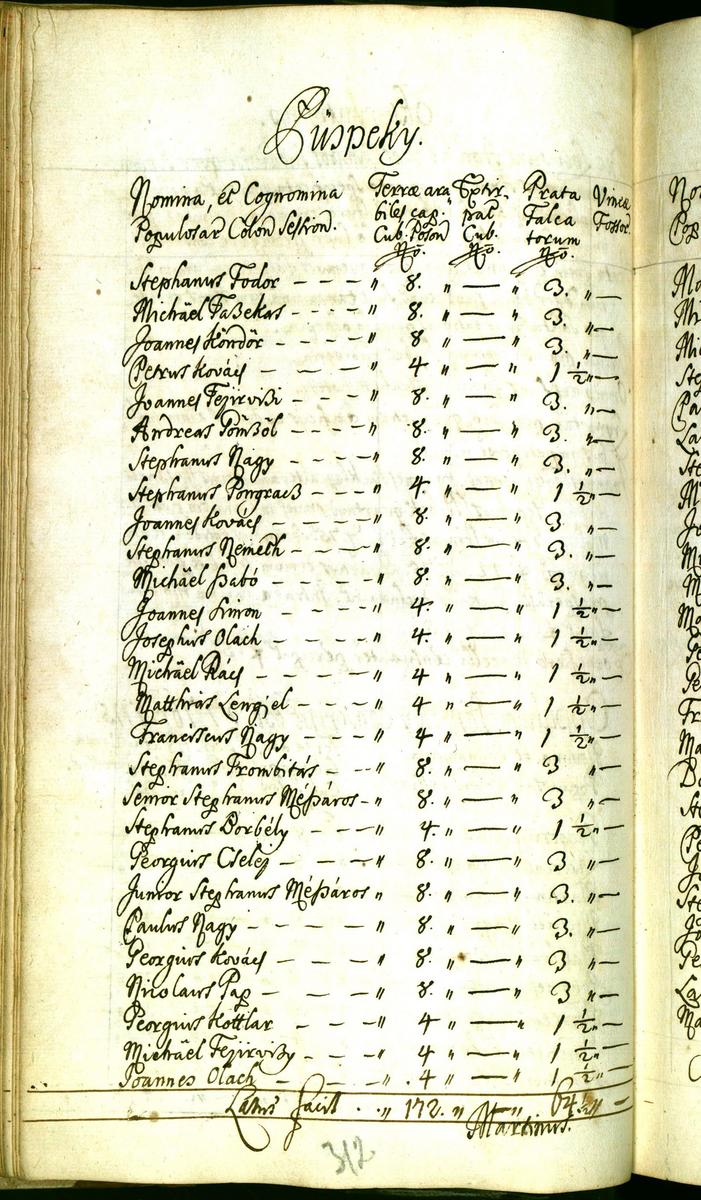 Püspeky.
Nomina, et Cognomina Terræ ara Extir- Prata Vineæ
Populosar Colon Session. biles cap. pat Falca Fossor
Cub. Poson Cub. torum
No. No. No.
Stephanus Fodor - - - - " 8. " — " 3. " —
Michäel Faßekas - - - - " 8. " — " 3. " —
Joannes Köndör - - - - " 8 " — " 3. " —
Petrus Kovács - - - " 4 " — " 1 ½ " —
Joannes Fejirvißi - - - " 8. " — " 3. " —
Andreas Pömßöl - - - - " 8. " — " 3. " —
Stephanus Nagy - - - - " 8. " — " 3. " —
Stephanus Pongracß - - - " 4. " — " 1 ½ " —
Joannes Kovács - - - - " 8. " — " 3 " —
Stephanus Nemeth - - - " 8. " — " 3. " —
Michäel Szabó - - - - " 8. " — " 3. " —
Joannes Simon - - - - " 4. " — " 1 ½ " —
Josephus Olach - - - - " 4. " — " 1 ½ " —
Michäel Rács - - - - " 4 " — " 1 ½ " —
Matthias Lengiel - - - - " 4 " — " 1 ½ " —
Franciscus Nagy - - - - " 4 " — " 1 ½ " —
Stephanus Trombitás - - - " 8. " — " 3 " —
Senior Stephanus Mészáros - " 8. " — " 3 " —
Stephanus Borbély - - - " 4. " — " 1 ½ " —
Georgius Cselej - - - " 8. " — " 3 " —
Junior Stephanus Mészáros " 8. " — " 3. " —
Paulus Nagy - - - - - " 8. " — " 3. " —
Georgius Kovács - - - - " 8. " — " 3 " —
Nicolaus Pap - - - - " 8. " — " 3 " —
Georgius Kottlar - - - " 4 " — " 1 ½ " —
Michäel Fejirvißy - - - " 4 " — " 1 ½ " —
Joannes Olach - - - " 4 " — " 1 ½ " —
Latus facit . . " 172. " — " 64 ½ " —
Martinus.
312